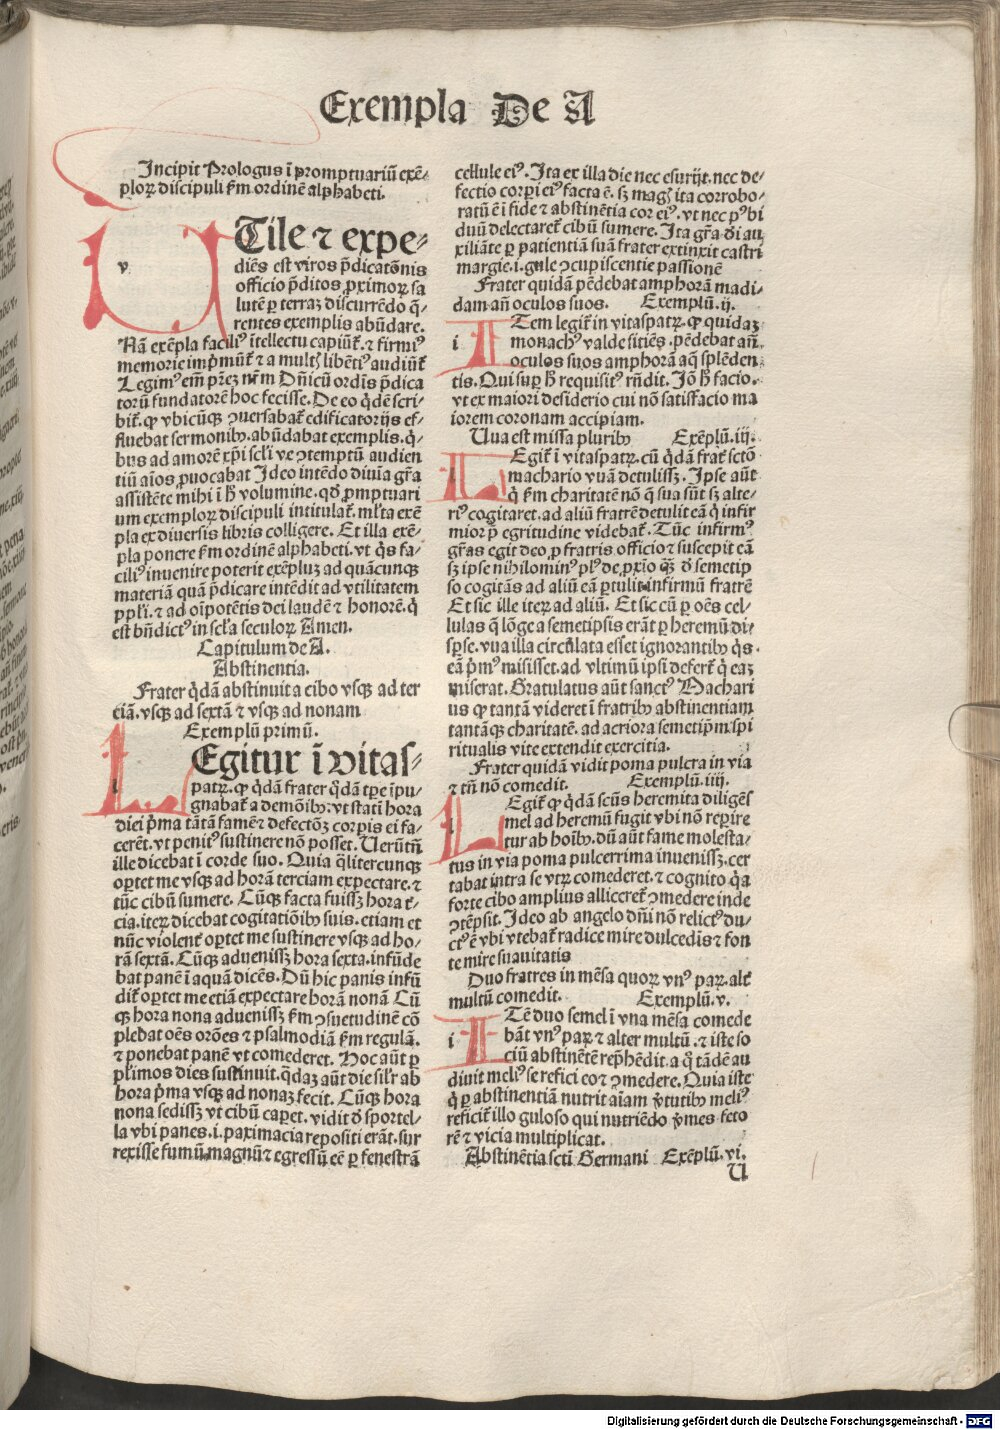 Exempla De A
Incipit Prologus ī promptuariū exē-
ploꝝ discipuli ẜm ordinē alphabeti.
UTile ⁊ expe-
diēs est viros p̄dicatōnis
officio p̄ditos ꝓximoꝝ sa
lutē ꝑ terraꝫ discurrēdo q̄-
rentes exemplis abūdare.
Nā exēpla faciliꝰ ītellectu capiūt᷑. ⁊ firmiꝰ
memorie imp̄mūt᷑ ⁊ a multꝭ libētiꝰ audiūt᷑
Legimꝰ em̄ prēꝫ nr̄m Dn̄icū ordīs p̄dica
torū fundatorē hoc fecisse. De eo q̇dē scri-
bit᷑. ꝙ vbicūqꝫ ꝯuersabat᷑ edificatorijs ef-
fluebat sermonibꝰ. abūdabat exemplis. q̇-
bus ad amorē xp̄i scl̓i ve ꝯtemptū audien
tiū aīos ꝓuocabat Ideo intēdo diuīa gr̄a
assistēte mihi ī h̓ volumine. qd̓ ꝓmptuari
um exemploꝝ discipuli intitulat᷑. ml̓ta exē
pla ex diuersis libris colligere. Et illa exē-
pla ponere ẜm ordinē alphabeti. vt q̇s fa-
ciliꝰ inuenire poterit exēpluꝫ ad quācunqꝫ
materiā quā p̄dicare intēdit ad vtilitatem
ppl̓i. ⁊ ad oīpotētis dei laudē ⁊ honorē. q̇
est bn̄dictꝰ in scl̓a seculoꝝ Amen.
Capitulum de A.
Abstinentia.
Frater q̇dā abstinuit a cibo vsqꝫ ad ter
ciā. vsqꝫ ad sextā ⁊ vsqꝫ ad nonam
Exemplū primū.
LEgitur ī vitas-
patꝝ. ꝙ q̇dā frater q̇dā tꝑe īpu-
gnabat᷑ a demōibꝰ: vt statī hora
diei p̄ma tātā famē ⁊ defectōꝫ corpis ei fa-
cerēt. vt penitꝰ sustinere nō posset. Uerūtn̄
ille dicebat ī corde suo. Quia q̄litercunqꝫ
oꝑtet me vsqꝫ ad horā terciam expectare. ⁊
tūc cibū sumere. Cūqꝫ facta fuissꝫ hora t̓-
cia. iteꝝ dicebat cogitatiōibꝰ suis. etiam et
nūc violent̓ oꝑtet me sustinere vsqꝫ ad ho-
rā sextā. Cūqꝫ aduenissꝫ hora sexta. infūde
bat panē ī aquā dicēs. Dū hic panis infū
dit᷑ oꝑtet me etiā expectare horā nonā Cū
qꝫ hora nona aduenissꝫ ẜm ꝯsuetudinē cō
plebat oēs orōes ⁊ psalmodiā ẜm regulā.
⁊ ponebat panē vt comederet. Hoc aūt ꝑ
pl̓imos dies sustinuit. q̇daꝫ aūt die sil̓r ab
hora p̄ma vsqꝫ ad nonaꝫ fecit. Cūqꝫ hora
nona sedissꝫ vt cibū caꝑet. vidit d̓ sportel-
la vbi panes .i. paximacia repositi erāt. sur
rexisse fumū magnū ⁊ egressū eē ꝑ fenestrā
cellule eiꝰ. Ita ex illa die nec esurijt. nec de-
fectio corꝑi eiꝰ facta ē. sꝫ magꝭ ita corrobo-
ratū ē ī fide ⁊ abstinētia cor eiꝰ. vt nec pꝰ bi
duū delectaret᷑ cibū sumere. Ita gr̄a di̓ au
xiliāte ꝑ patientiā suā frater extinxit castri
margie .i. gule ꝯcupiscentie passionē
Frater quidā pēdebat amphorā madi-
dam an̄ oculos suos. Exemplū. ij.
ITem legit᷑ in vitaspatꝝ. ꝙ quidaꝫ
monachꝰ valde sitiēs. pēdebat an̄
oculos suos amphorā aq̄ splēden-
tis. Qui suꝑ h̓ requisitꝰ rn̄dit. Iō h̓ facio.
vt ex maiori desiderio cui nō satisfacio ma
iorem coronam accipiam.
Uua est missa pluribꝰ Exēplū. iij.
LEgit᷑ ī vitaspatꝝ. cū q̇dā frat̓ sctō
machario vuā detulissꝫ. Ipse aūt
q̇ ẜm charitatē nō q̄ sua sūt sꝫ alte-
riꝰ cogitaret. ad aliū fratrē detulit eā q̇ infir
mior p̄ egritudine videbat᷑. Tūc infirmꝰ
gr̄as egit deo ꝓ fratris officio ⁊ suscepit eā
sꝫ ipse nihilominꝰ plꝰ de ꝓxīo qꝫ d̓ semetip
so cogitās ad aliū eā ꝑtulit infirmū fratrē
Et sic ille iteꝝ ad aliū. Et sic cū ꝑ oēs cel-
lulas q̄ lōge a semetipsis erāt ꝑ heremū di-
sꝑse. vua illa circūlata esset ignorantibꝰ q̇s
eā p̄mꝰ misisset. ad vltimū ipsi defert᷑ q̇ eaꝫ
miserat. Gratulatus aūt sanctꝰ Machari
us ꝙ tantā videret ī fratribꝰ abstinentiam
tantāqꝫ charitatē. ad acriora semetip̄m spi
ritualis vite extendit exercitia.
Frater quidā vidit poma pulcra in via
⁊ tn̄ nō comedit. Exemplū. iiij.
LEgit᷑ ꝙ q̇dā scūs heremita diligēs
mel ad heremū fugit vbi nō reperire
tur ab hoībꝰ. dū aūt fame molesta-
tus in via poma pulcerrima inuenissꝫ. cer
tabat intra se vtꝝ comederet. ⁊ cognito q̇a
forte cibo amplius alliceret᷑ ꝯmedere inde
ꝯtēpsit. Ideo ab angelo dn̄i nō relictꝰ du-
ctꝰ ē vbi vtebat᷑ radice mire dulcedīs ⁊ fon
te mire suauitatis
Duo fratres in mēsa quoꝝ vnꝰ paꝝ. alt̓
multū comedit. Exemplū. v.
ITē duo semel ī vna mēsa comede
bāt vnꝰ paꝝ ⁊ alter multū. ⁊ iste so
ciū abstinētē rep̄hēdit. a q̇ tādē au
diuit meliꝰ se refici eo ⁊ ꝯmedere. Quia iste
q̇ ꝑ abstinentiā nutrit aīam v̓tutibꝰ meliꝰ
reficit᷑ illo guloso qui nutriēdo v̓mes feto
rē ⁊ vicia multiplicat.
Abstinētia scti̓ Germani Exēplū. vi.
U
Digitalisierung gefördert durch die Deutsche Forschungsgemeinschaft - DFG